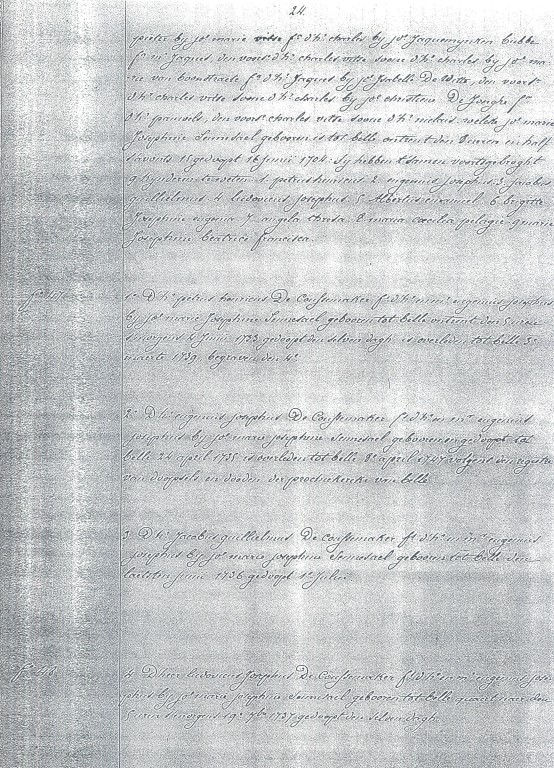 24.
pieter by jo.e marie vitse f.a d'h.r charles by jo.e Jaquemynken Cubbe
f.a m.r Jaques, den voors.t charles vitse soone d'h.r charles by jo.e ma-
rie van boonstraete f.a d'h.r Jaques by jo.e Isabelle De Witte, den voors.t
d'h.r charles vitse soone d'h.r charles by jo.e christiene De Jonghe f.a
d'h.r pauwels, den voors.t charles vitte soone d'h.r niclais. welcke jo.e marie
Josephine Sennesael gebooren is tot belle ontrent den 8 uren en half
s'avonts 15 gedoopt 16 Junii 1704: sy hebben t'samen voortsgebroght
9 kynderen te weten 1. petrus henricus 2. eugenius josephus 3. jacobus
guillielmus 4. ludovicus josephus 5. Albertus emanuel 6. brigitta
Josephine eugenia 7. angela thresa 8. maria caecilia pelagie 9. marie
Josephine beatrice francisca.
1.o D'h.r petrus henricus De Coussemaker f.s d'h.r m.r eugenius Josephus
by jo.e marie Josephine Sennesael gebooren tot belle ontrent den 5 uren
smorgens 6 Junii 1733 gedoopt den selven dagh. is overleden tot belle 3.e
maerte 1739. begraven den 4.e
2.o D'h.r eugenius josephus De Coussemaker f.s d'h.r m.r eugenius
josephus by jo.e marie josephine Sennesael gebooren en gedoopt tot
belle 24 april 1735 is overleden tot belle 8.e april 1747 volgens den register
van doopsels en dooden der prochiekercke van belle
3 D'h.r Jacobus guillielmus De Coussemaker f.s d'h.r m.r eugenius
josephus by jo.e marie josephine Sennesael gebooren tot belle den
laetsten junii 1736 gedoopt 1.e Julii
4. D'heer ludovicus Josephus De Coussemaker f.s d'h.r m.r eugenius jose-
phus by jo.e marie josephine Sennesael gebooren tot belle quaert naer den
5 uren smorgens 19.e 7.bre 1737 gedoopt den selven dagh